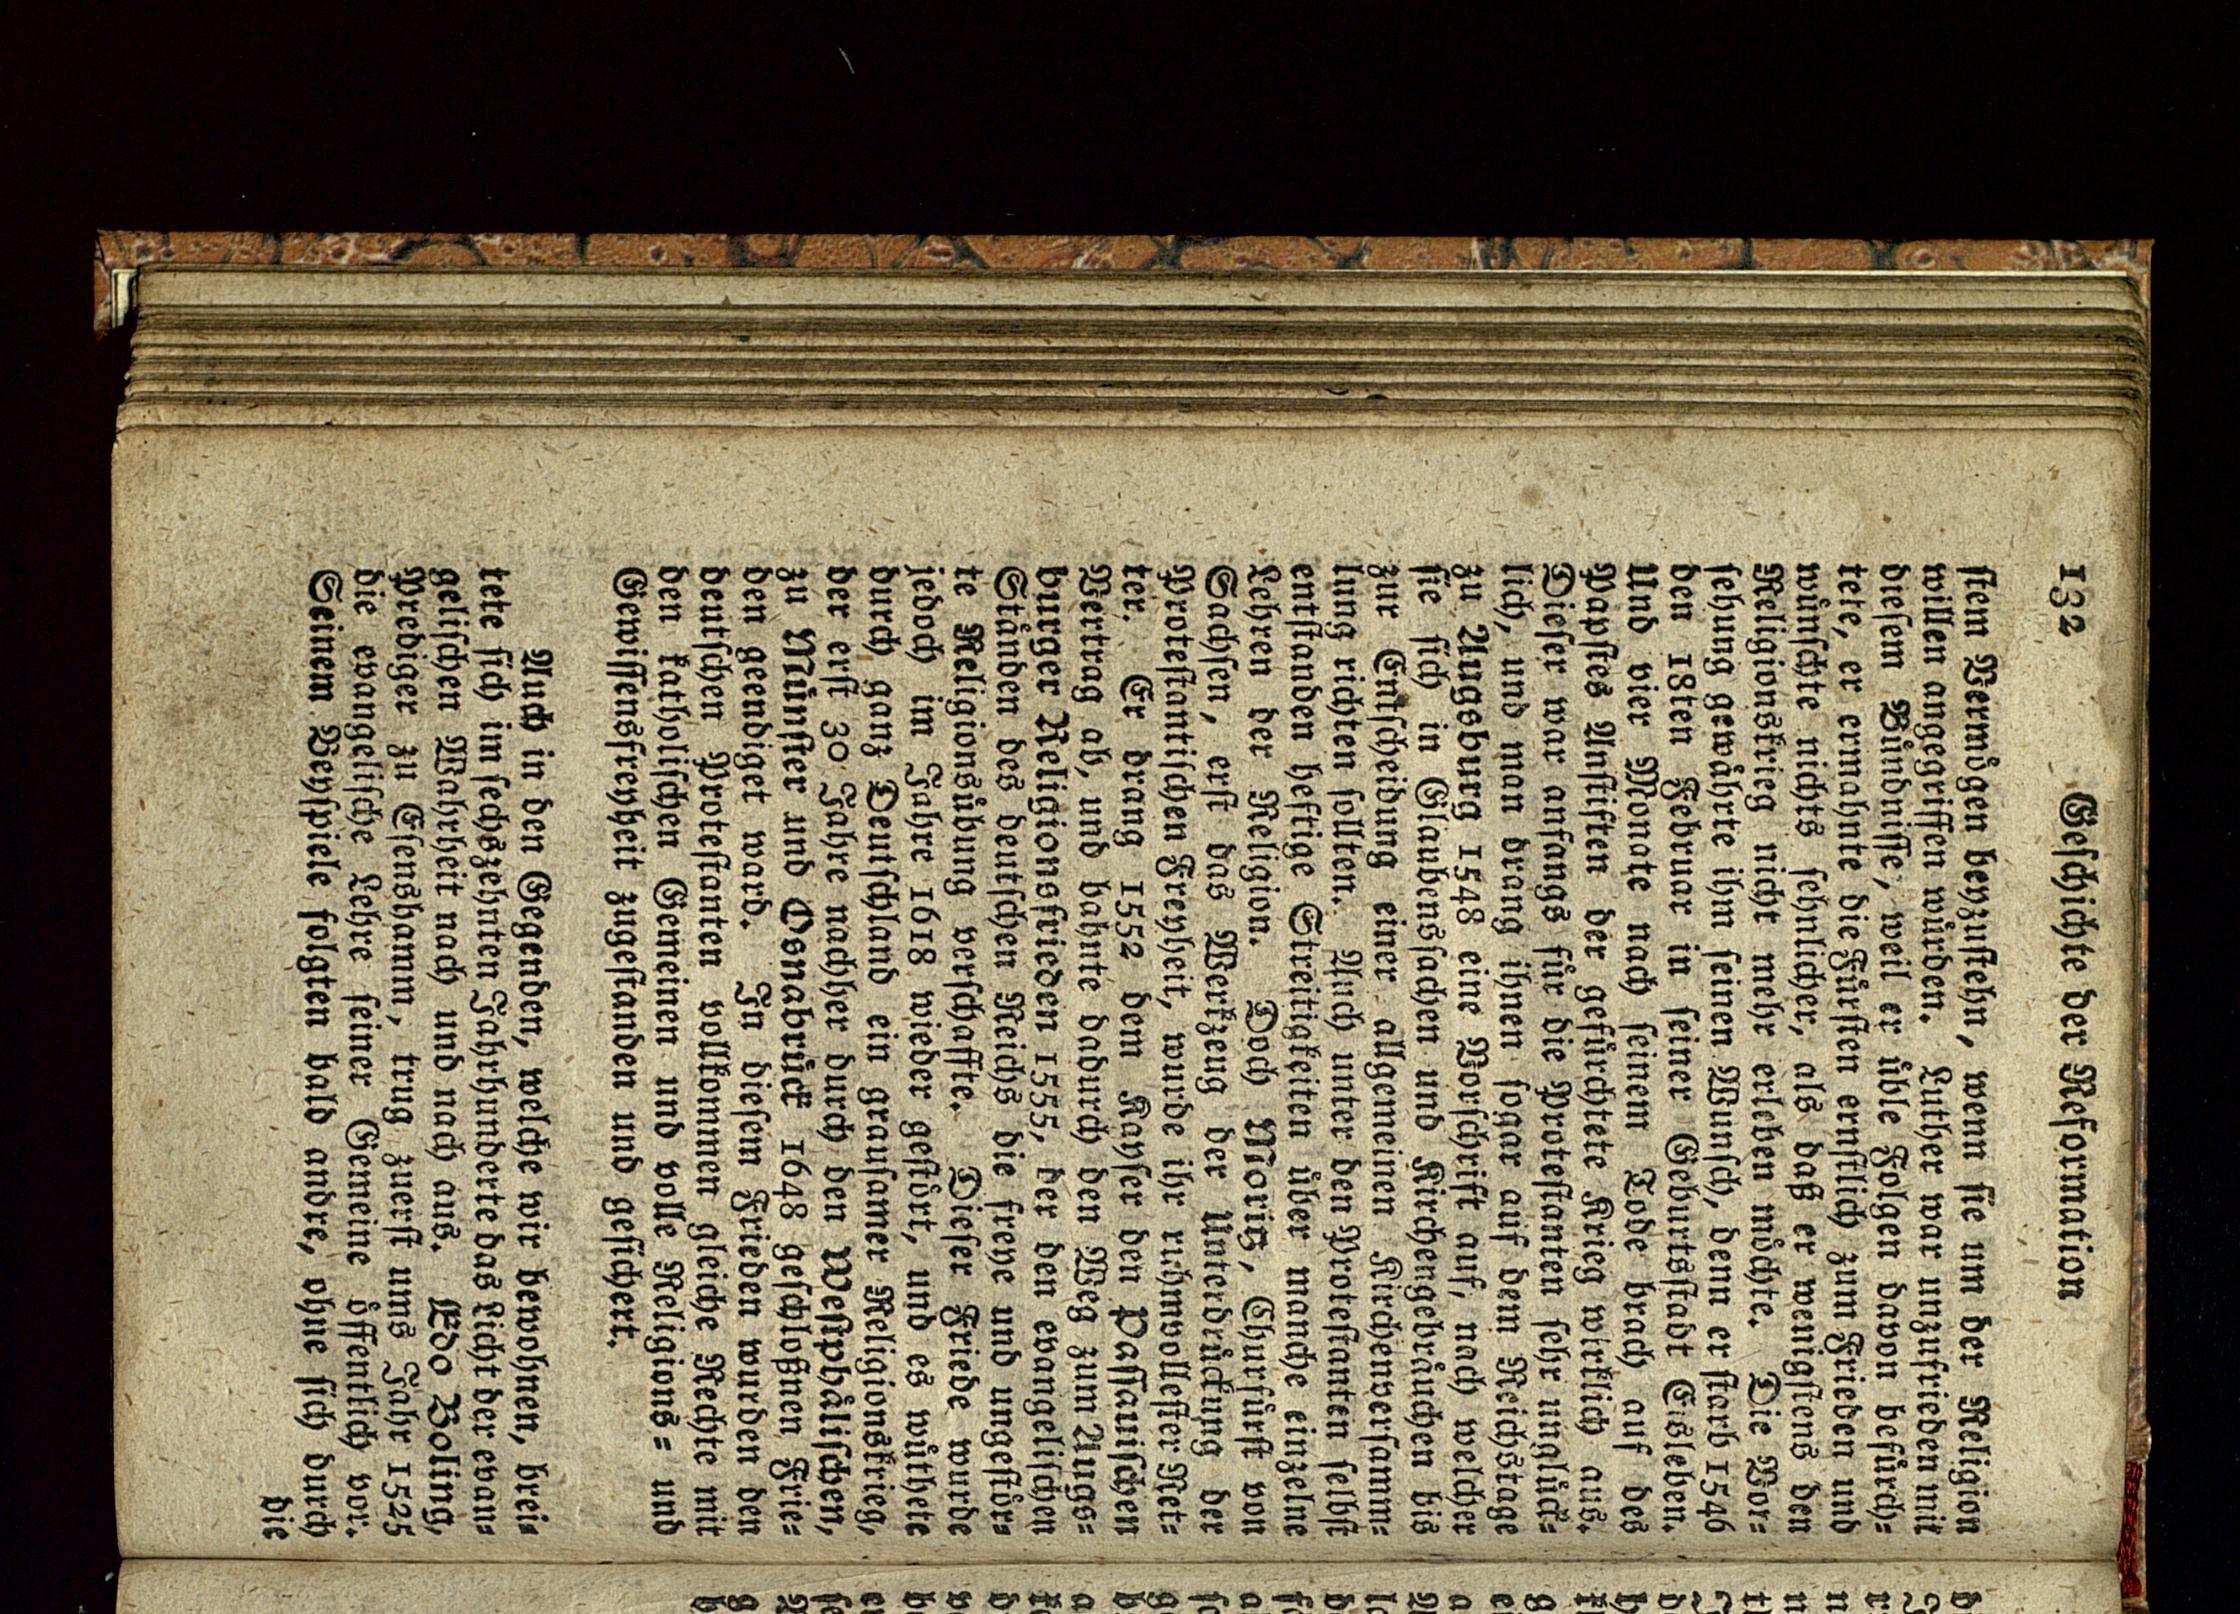 132 Geſchichte der Reformation
ſtem Vermögen beyzuſtehn, wenn ſie um der Religion
willen angegriffen würden. Luther war unzufrieden mit
dieſem Bündniſſe, weil er üble Folgen davon befürch-
tete, er ermahnte die Fürſten ernſtlich zum Frieden und
wünſchte nichts ſehnlicher, als daß er wenigſtens den
Religionskrieg nicht mehr erleben möchte. Die Vor-
ſehung gewährte ihm ſeinen Wunſch, denn er ſtarb 1546
den 18ten Februar in ſeiner Geburtsſtadt Eisleben.
Und vier Monate nach ſeinem Tode brach auf des
Papſtes Anſtiften der gefürchtete Krieg wirklich aus.
Dieſer war anfangs für die Proteſtanten ſehr unglück-
lich, und man drang ihnen ſogar auf dem Reichstage
zu Augsburg 1548 eine Vorſchrift auf, nach welcher
ſie ſich in Glaubensſachen und Kirchengebräuchen bis
zur Entſcheidung einer allgemeinen Kirchenverſamm-
lung richten ſollten. Auch unter den Proteſtanten ſelbſt
entſtanden heftige Streitigkeiten über manche einzelne
Lehren der Religion. Doch Moritz, Churfürſt von
Sachſen, erſt das Werkzeug der Unterdrückung der
Proteſtantiſchen Freyheit, wurde ihr ruhmvollſter Ret-
ter. Er drang 1552 dem Kayſer den Paſſauiſchen
Vertrag ab, und bahnte dadurch den Weg zum Augs-
burger Religionsfrieden 1555, der den evangeliſchen
Ständen des deutſchen Reichs die freye und ungeſtör-
te Religionsübung verſchaffte. Dieſer Friede wurde
jedoch im Jahre 1618 wieder geſtört, und es wüthete
durch ganz Deutſchland ein grauſamer Religionskrieg,
der erſt 30 Jahre nachher durch den Weſtphäliſchen,
zu Münſter und Osnabrück 1648 geſchloßnen Frie-
den geendiget ward. In dieſem Frieden wurden den
deutſchen Proteſtanten vollkommen gleiche Rechte mit
den katholiſchen Gemeinen und volle Religions- und
Gewiſſensfreyheit zugeſtanden und geſichert.
Auch in den Gegenden, welche wir bewohnen, brei-
tete ſich im ſechszehnten Jahrhunderte das Licht der evan-
geliſchen Wahrheit nach und nach aus. Edo Boling,
Prediger zu Eſenshamm, trug zuerſt ums Jahr 1525
die evangeliſche Lehre ſeiner Gemeine öffentlich vor.
Seinem Beyſpiele folgten bald andre, ohne ſich durch
die